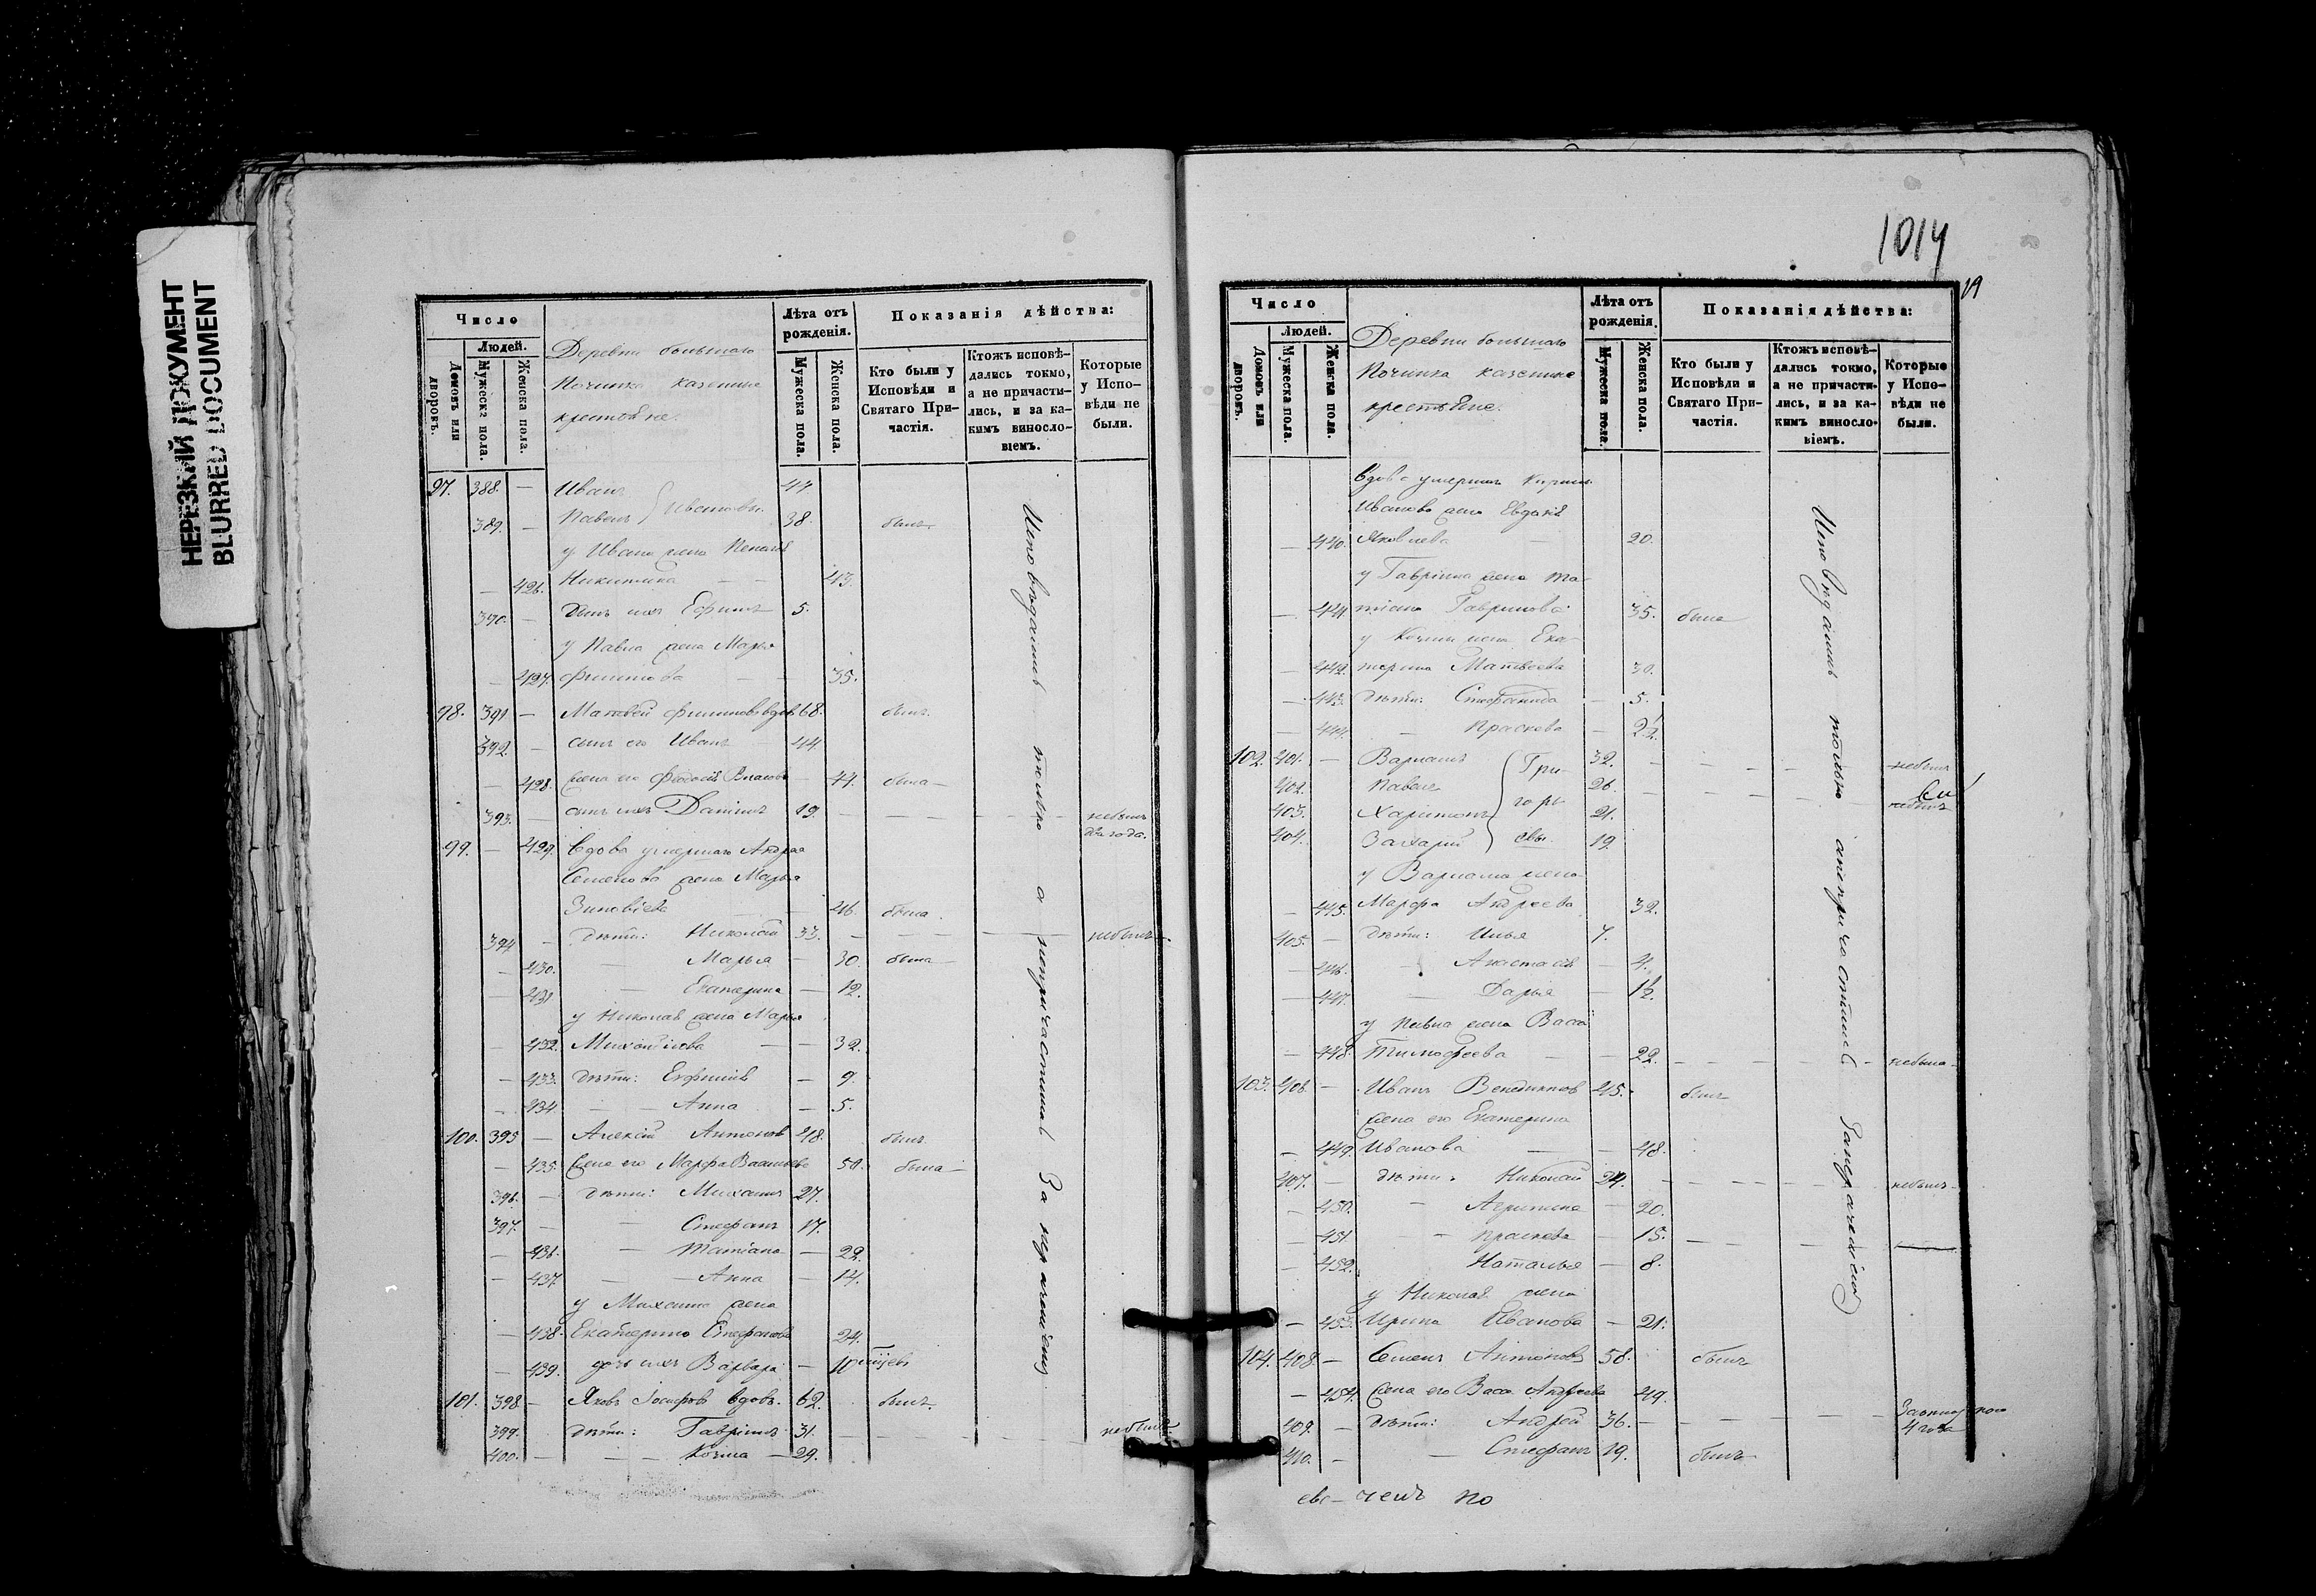 НЕРЕЗКИЙ ДОКУМЕНТ
BLURRED DOCUMENT
Число
Людей.
Домовъ или дворовъ.
Мужеска пола.
Женска пола.
Деревни большаго
Починка казенные
крестьяне.
Лѣта отъ рожденія.
Мужеска пола.
Женска пола.
Показанія дѣйства:
Кто были у Исповѣди и Святаго Причастія.
Ктожъ исповѣдались токмо, а не причастились, и за какимъ винословіемъ.
Которые у Исповѣди не были.
97. 388. — Иванъ 44
389. — Павелъ } Ивановы 38. былъ
у Ивана жена
— 426. Никитина — — 43.
390. — сынъ ихъ Ефимъ 5.
у Павла жена Марья
— 427. Филипова — — 35.
98. 391 — Матвей Филиповъ вдовъ 68. былъ.
392. — сынъ его Иванъ — 44
— 428. жена его Власова — 44. была —
393. — сынъ ихъ Даниилъ 19. — — — — небылъ
два года.
99. — 429. Вдова умершаго Андрея
Семенова жена Марья
Зиновіева — 46. была.
394 — дѣти: Николай 33. — — — — небылъ
— 430. — Марья — 30. была —
— 431 — Екатерина — 12.
у Николая жена Марья
— 432. Михайлова — — 32.
— 433. дѣти: Евфимія — 9.
— 434. — — Анна — 5.
100. 395 — Алексѣй Антоновъ 48. былъ.
— 435. жена его Марфа Васильева 50. была —
396. — дѣти: Михаилъ 27.
397. — — Стефанъ 17.
— 436. — Татіана — 22.
— 437. — — Анна — 14.
у Михаила жена
— 438. Екатерина Стефанова 24.
— 439. дочь ихъ Варвара — 10
101. 398 — Яковъ Іосифовъ вдовъ. 62. былъ.
399. дѣти: Гавріилъ 31. — — — — небылъ
400. — — — Козма — 29.
Исповѣдались только а непричастились За нерачениемъ
1014
19
Число
Людей.
Домовъ или дворовъ.
Мужеска пола.
Женска пола.
Деревни большаго
Починка казенные
крестьяне.
Лѣта отъ рожденія.
Мужеска пола.
Женска пола.
Показанія дѣйства:
Кто были у Исповѣди и Святаго Причастія.
Ктожъ исповѣдались токмо, а не причастились, и за какимъ винословіемъ.
Которые у Исповѣди не были.
Вдова умершаго
Иванова жена Евдокія
— 440. Яковлева — 20.
у Гавріила жена Та-
— 441 тіана Гаврилова 35. была
у Козмы жена Ека-
— 442. терина Матвѣева 30.
— 443. дѣти: Стефанида — 5.
— 444. — Праскева — 2½
102. 401. — Варлаамъ 32. — — — — небылъ
402. Павелъ 26. — — — — небылъ
403. Харитонъ 21.
404. Захарій } Григорьевы 19.
у Варлаама жена
— 445. Марфа Андреева 32.
405. — дѣти: Илья 7.
— 446. — Анастасія — 4.
— 447. — Дарья — 1½.
у Павла жена Васса
— 448. Тимофеева — — 22. — — — — небыла
103. 406. — Иванъ Венедиктовъ 45. былъ
жена его Екатерина
— 449. Иванова — — 48.
407. — дѣти: Николай 24. — — — — небылъ
— 450. — — 20.
— 451. — Праскева — 15. — — —
— 452. Наталья — 8.
у Николая жена
— 453. Ирина Иванова — 21.
104. 408. — Семенъ Антоновъ 58. былъ
— 454. жена его Васса Андреева 49.
409. — дѣти: Андрей 36. — — — —
4 года
410. — — Стефанъ 19. былъ
Исповѣдались только анепричастились Занерачениемъ